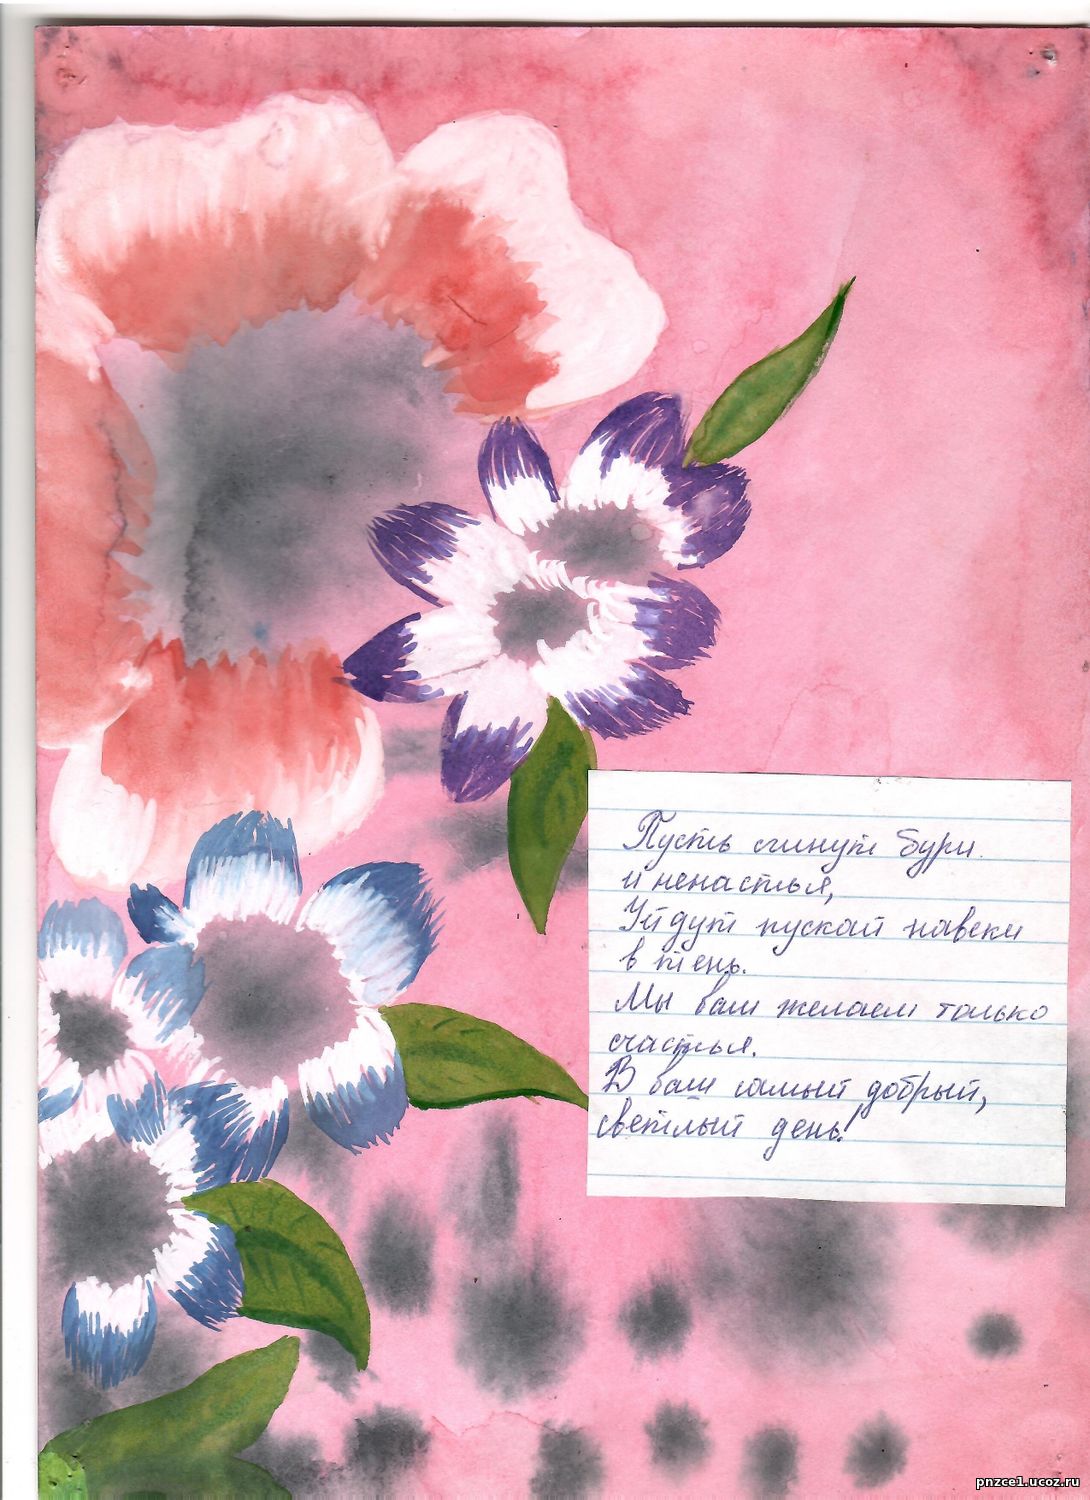 Пусть сгинут бури
и ненастья,
Уйдут пускай навеки
в тень.
Мы вам желаем только
счастья.
В ваш самый добрый,
светлый день!
pnzcel.ucoz.ru